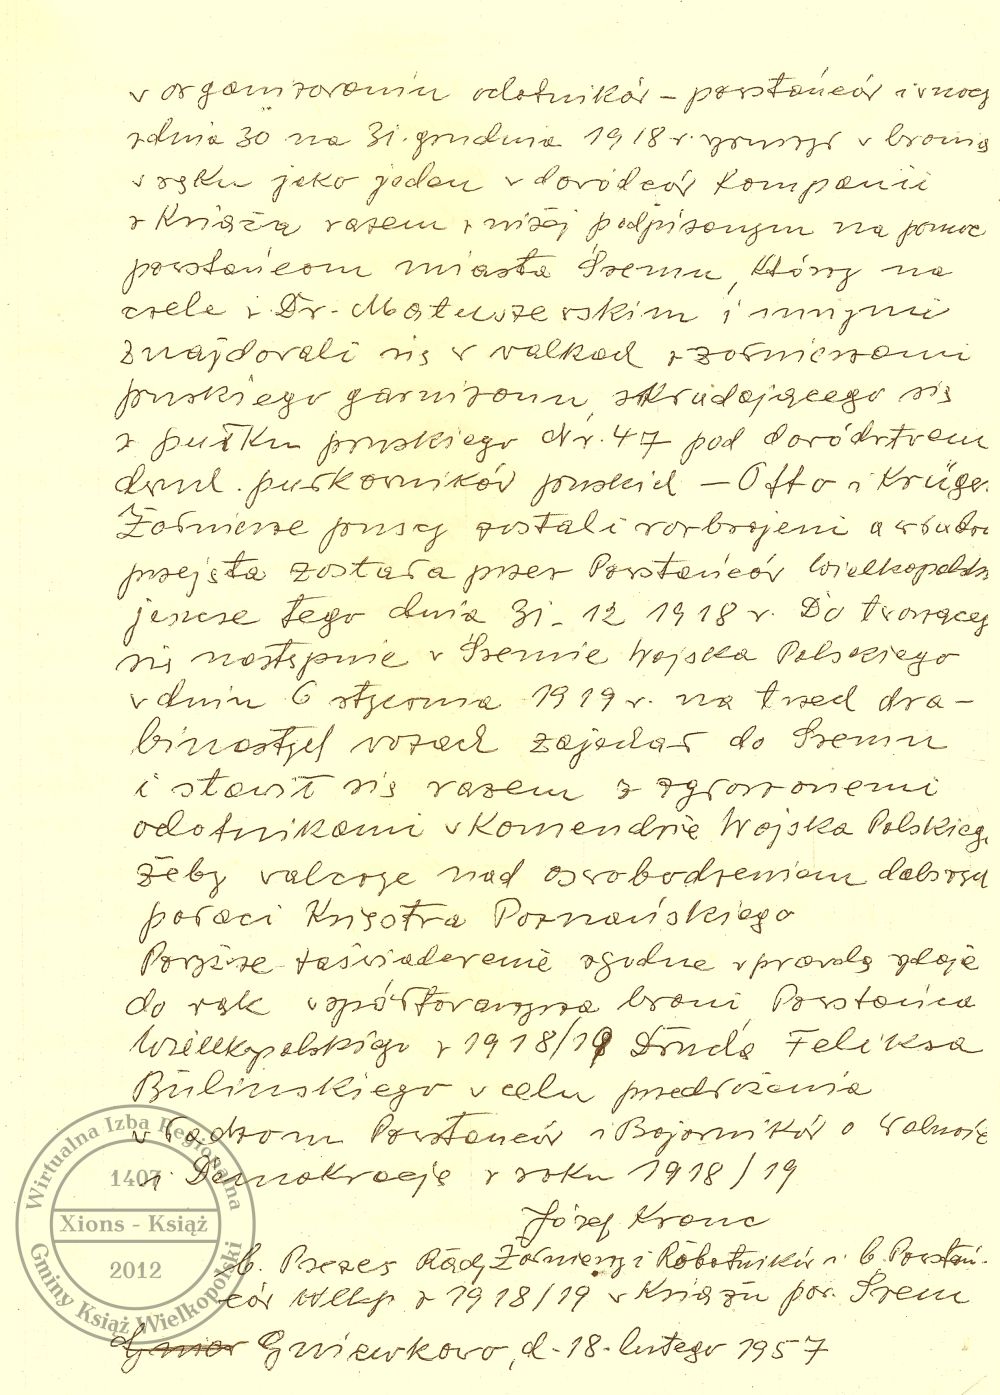 w organizowaniu ochotników – powstańców i w nocy
z dnia 30 na 31. grudnia 1918 r. wyruszył w bronią
w ręku jako jeden w dowódców kompanii
z Książa razem z niżej podpisanym na pomoc
powstańcom miasta Śremu, którzy na
czele z Dr. Matuszewskim i innymi
znajdowali się w walkach z żołnierzami
pruskiego garnizonu, składającego się
z pułku pruskiego Nr. 47 pod dowództwem
dwuch pułkowników pruskich – Otto i Krüger
Żołnierze pruscy zostali rozbrojeni a władza
przejęta została przez Powstańców Wielkopolskich
jeszcze tego dnia 31. 12 1918 r. Do tworzącego
się następnie w Śremie Wojska Polskiego
w dniu 6 stycznia 1919 r. na trzech dra-
biniastych wozach zajechał do Śremu
i stawił się razem z zgłoszonemi
ochotnikami w Komendzie Wojska Polskiego
żeby walczyć nad oswobodzeniem dalszych
połaci Księstwa Poznańskiego
Powyższe zaświadczenie zgodne z prawdą zdaję
do rąk współtowarzysza broni Powstańca
Wielkopolskiego z 1918/19 Druha Feliksa
Bulinskiego w celu przedłożenia
władzom Powstańców i Bojowników o Wolność
i Demokrację z roku 1918/19
Józef Kranc
b. Prezes Rady Żołnierzy i Robotników i b. Powstań-
ców Wlkp z 1918/19 w Książu pow. Śrem
Gniewkowo, d. 18. lutego 1957
Wirtualna Izba Regionalna
1407
Xions - Książ
2012
Gminy Książ Wielkopolski